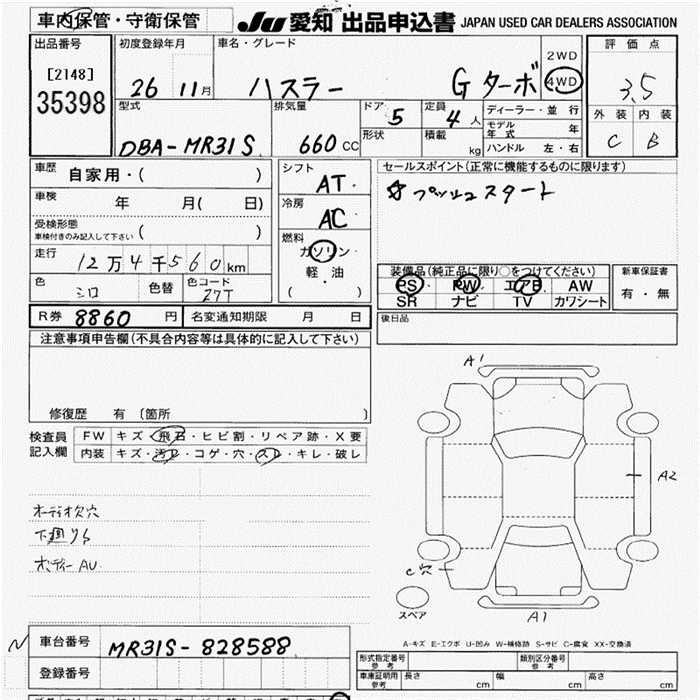 車内保管・守衛保管 JU 愛知 出品申込書 JAPAN USED CAR DEALERS ASSOCIATION
出品番号 [2148] 35398
初度登録年月 26 11月
車名・グレード ハスラー Gターボ
2WD
4WD
評価点 3.5
外装 内装
C B
型式 DBA-MR31S
排気量 660 CC
ドア 5
定員 4 人
形状
積載 kg
ディーラー・並行
モデル年式 年
ハンドル 左・右
車歴 自家用・( )
車検 年 月( 日)
受検形態
車検付きのみ記入して下さい ( )
走行 12万4千560km
色 シロ 色替 色コード Z7T
シフト AT
冷房 AC
燃料
ガソリン・
軽・油
( )
セールスポイント(正常に機能するものに限ります)
☆プッシュスタート
装備品(純正品に限り○をつけてください)
PS PW エアB AW
SR ナビ TV カワシート
新車保証書
有・無
後日品
R券 8860 円
名変通知期限 月 日
注意事項申告欄(不具合内容等は具体的に記入して下さい)
修復歴 有 (箇所 )
検査員記入欄
FW キズ・飛石・ヒビ割・リペア跡・X要
内装 キズ・汚レ・コゲ・穴・スレ・キレ・破レ
オーディオ欠穴
下廻りS
ボディーAU
A1
A2
C穴
スペア
A1
A-キズ E-エクボ U-凹み W-補修跡 S-サビ C-腐食 XX-交換済
車台番号 MR31S-828588
登録番号
形式指定番号 参考
類別区分番号 参考
車庫証明用 参考 長さ cm 幅 cm 高さ cm